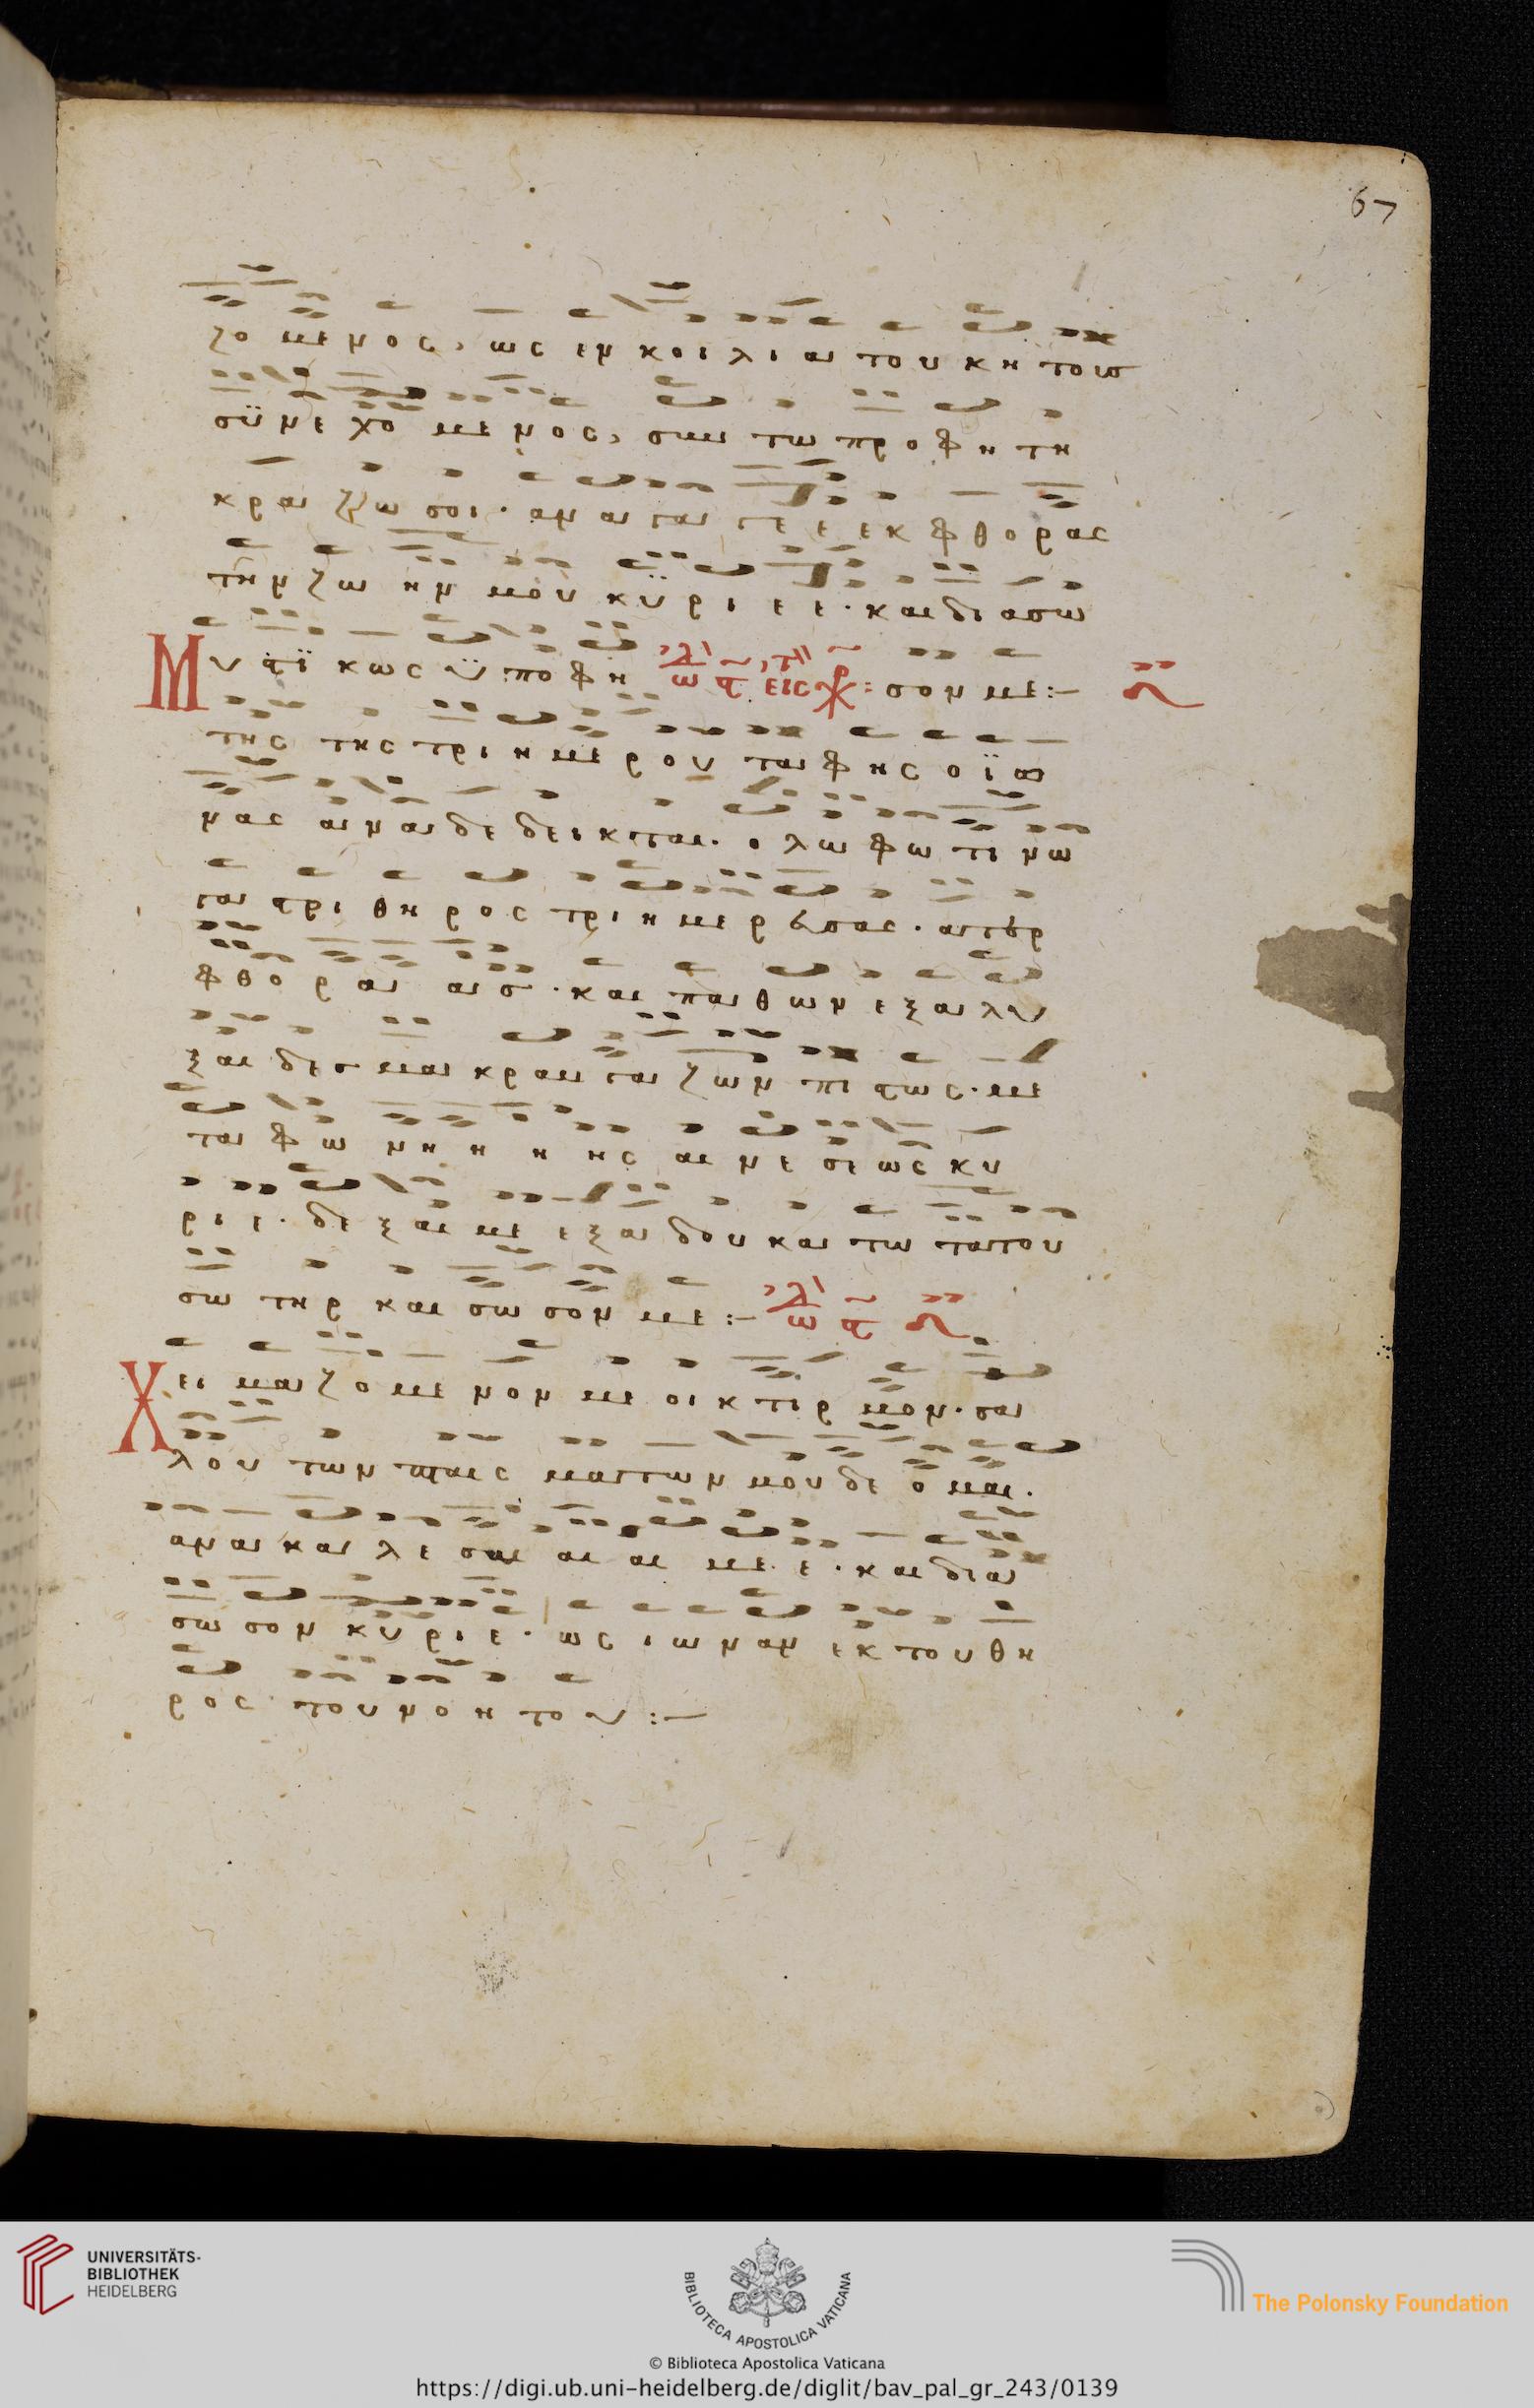 67
ζο με νος, ως εν κοι λι α του κη τους
συ νε χο με νος, συν τω προ φη τη
κρα ζω σοι. αν α γα γε ε εκ φθο ρας
την ζω ην μου κυ ρι ε ε. και δι α σω
Μυ στι κως υ πο φη ωδ εις σον με:-
της της τρι η με ρου τα φης ο ϊ ω
νας α να δε δει κται. ο λω φω τι νω
γα στρι θη ρος τρι η με ρευ σας.
φθο ρας και πα θων ε ξα λυ
ξαι δε σμα κραυ γα ζων πι στως. με
τα φω νη η η ης αι νε σε ως κυ
ρι ε. δε ξαι με ε ξ α δου και του
σω τηρ και σω σον με:-
Χει μα ζο με νον με οι κτιρ μον. σα
λου των πται σ μα των μου δε ο μαι.
αν α κα λε σαι αι αι με ε. και δι α
σω σον κυ ρι ε. ως ι ω ναν εκ του θη
ρος του νο η το υ:-
UNIVERSITÄTS-
BIBLIOTHEK
HEIDELBERG
BIBLIOTECA APOSTOLICA VATICANA
The Polonsky Foundation
© Biblioteca Apostolica Vaticana
https://digi.ub.uni-heidelberg.de/diglit/bav_pal_gr_243/0139